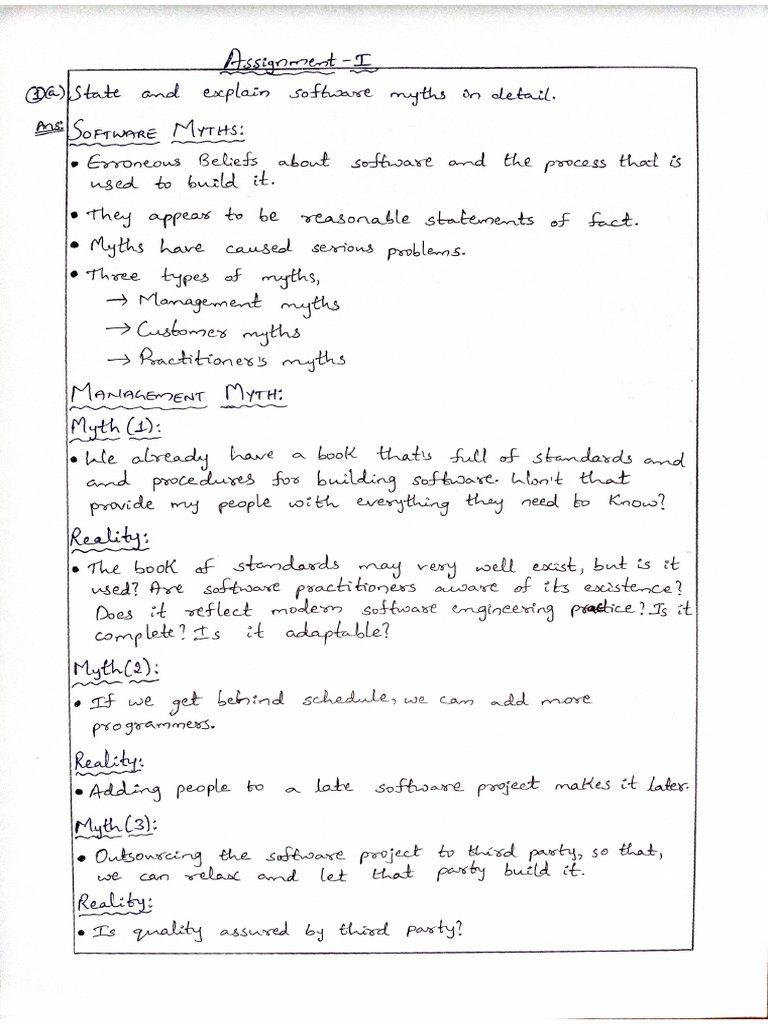 Assignment-I
①(a) State and explain software myths in detail.
Ans: SOFTWARE MYTHS:
• Erroneous Beliefs about software and the process that is
used to build it.
• They appear to be reasonable statements of fact.
• Myths have caused serious problems.
• Three types of myths,
→ Management myths
→ Customer myths
→ Practitioner's myths
MANAGEMENT MYTH:
Myth (1):
• We already have a book that's full of standards and
and procedures for building software. Won't that
provide my people with everything they need to know?
Reality:
• The book of standards may very well exist, but is it
used? Are software practitioners aware of its existence?
Does it reflect modern software engineering practice? Is it
complete? Is it adaptable?
Myth(2):
• If we get behind schedule, we can add more
programmers.
Reality:
• Adding people to a late software project makes it later.
Myth(3):
• Outsourcing the software project to third party, so that,
we can relax and let that party build it.
Reality:
• Is quality assured by third party?